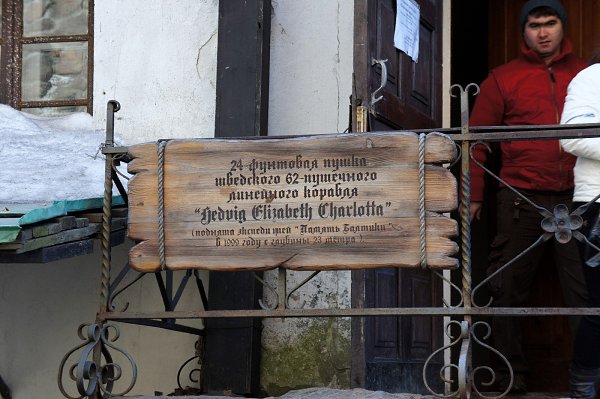 24-фунтовая пушка
шведского 62-пушечного
линейного корабля
"Hedvig Elizabeth Charlotta"
(поднята экспедицией "Память Балтики"
в 1999 году с глубины 28 метра)